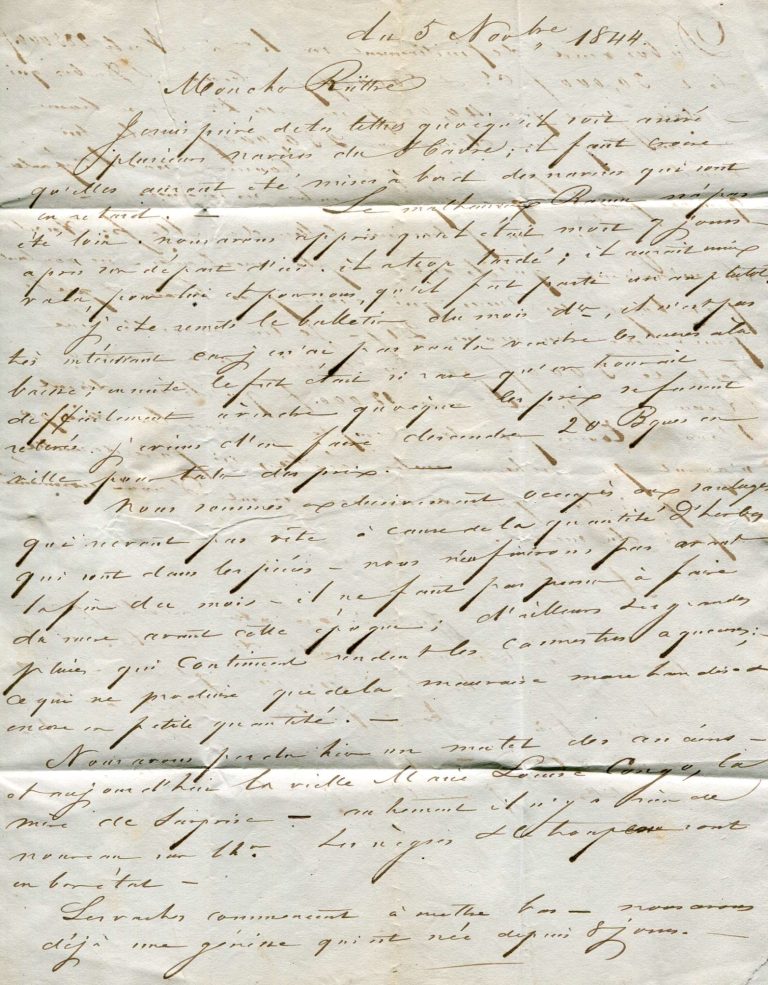 du 5 Novbre 1844.
Mon cher
Je suis privé de tes lettres quoiqu'il soit arrivé
plusieurs navires du Havre; il faut croire
qu'elles auront été mises à bord des navires qui sont
en retard. — Le malheureux n'a pas
été loin. nous avons appris qu'il était mort 7 jours
après son départ d'ici. il a trop tardé; il aurait mieux
valu, pour lui et pour nous, qu'il fut parti un an plutot.
j'ai remis le bulletin du mois dr, il n'est pas
très intéressant car je n'ai pas voulu vendre les sucres à la
baisse; ensuite le fret était si rare qu'on trouvait
difficilement à vendre quoique les prix se fussent
relevés. je viens d'en faire descendre 20 Bques en
ville pour tater des prix. —
Nous sommes exclusivement occupés aux sarclages
qui ne vont pas vite à cause de la quantité d'herbes
qui sont dans les pièces — nous n'en finirons pas avant
la fin du mois — il ne faut pas penser à faire
du sucre avant cette époque; d'ailleurs les grandes
pluies qui continuent rendent les cannes très aqueuses:
ce qui ne produira que de la mauvaise marchandise et
encore en petite quantité. —
Nous avons perdu hier un mulet des anciens —
et aujourd'hui la vieille Marie Louise Congo, la
mère de Surprise — autrement il n'y a rien de
nouveau sur l'hon. Les nègres et troupeau sont
en bon état —
Les vaches commencent à mettre bas — nous avons
déjà une génisse qui est née depuis 8 jours. —